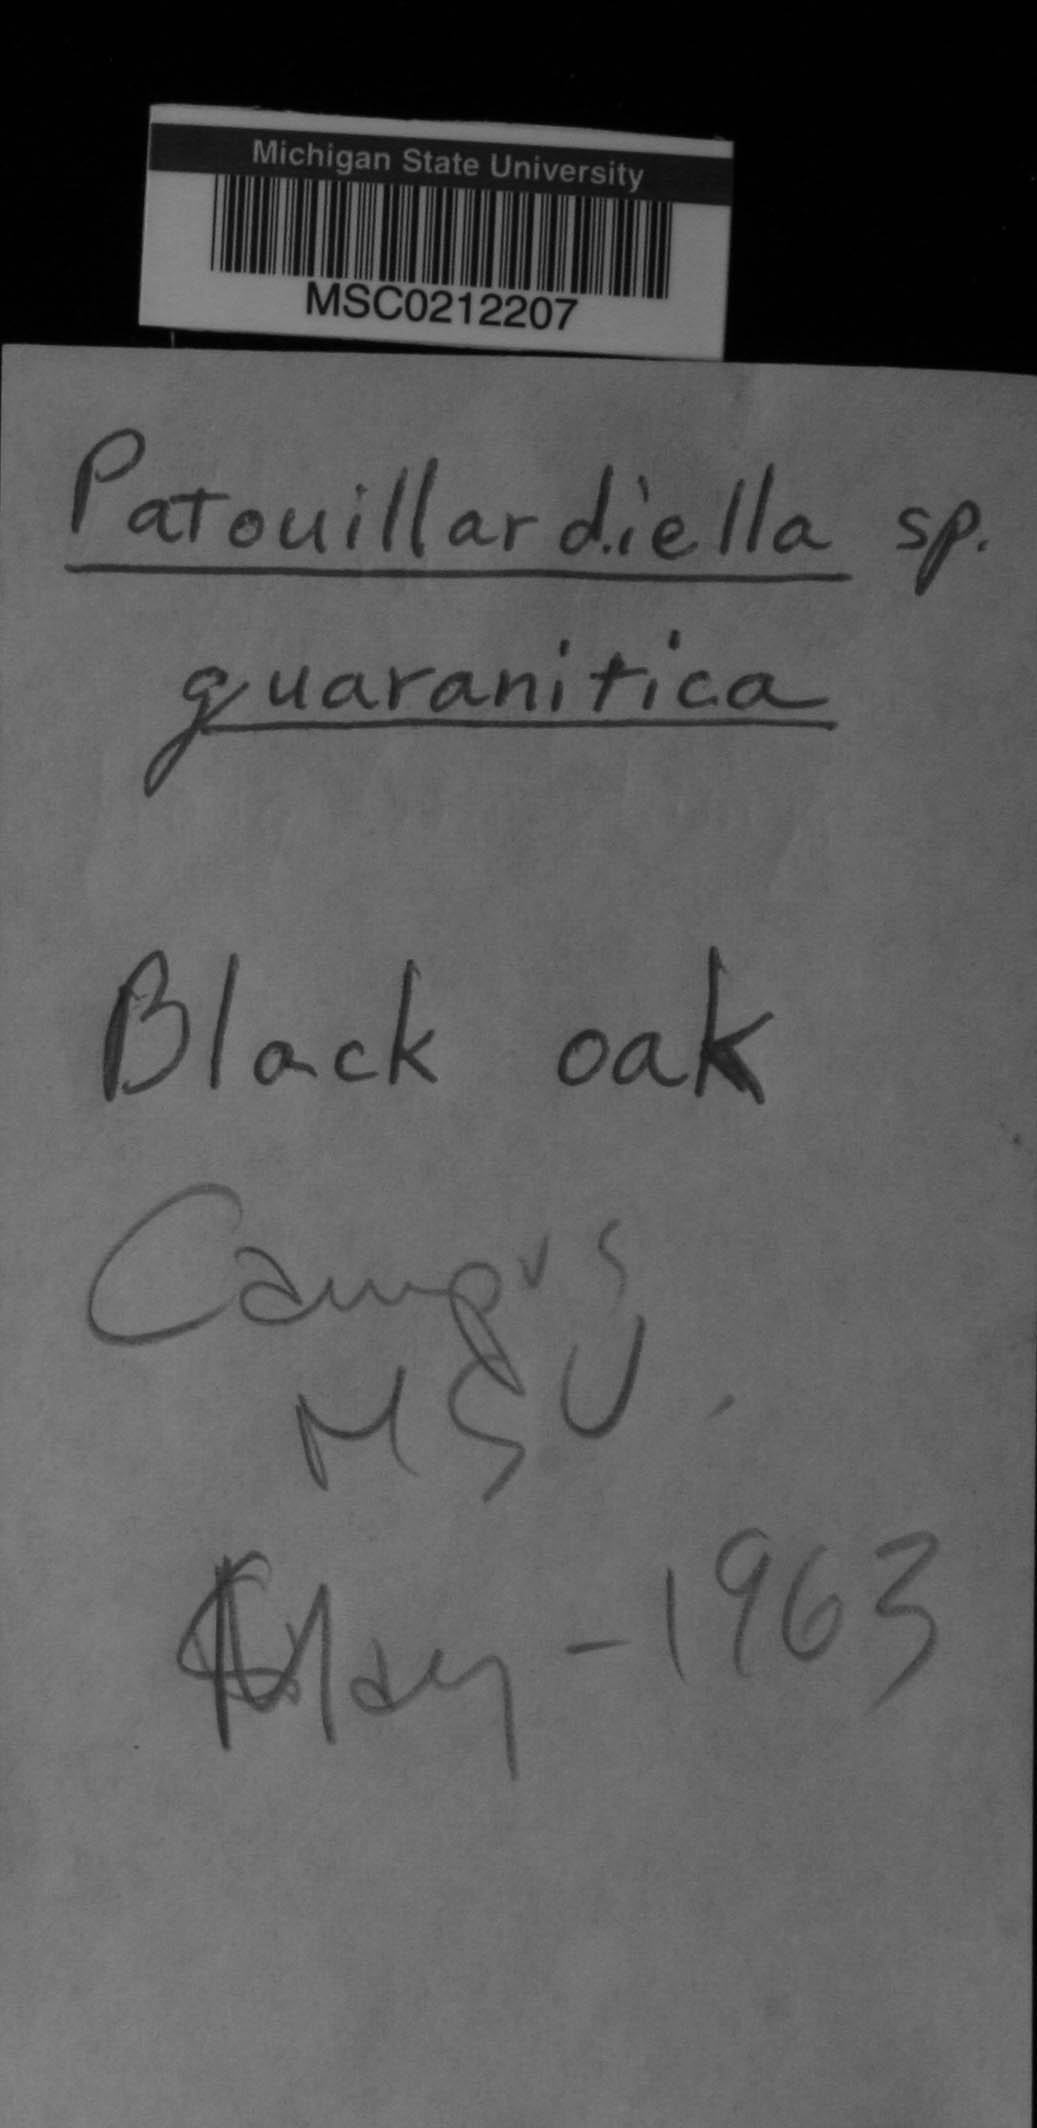 Michigan State University
MSC0212207
Patouillardiella sp.
guaranitica
Black oak
Campus
MSU.
May - 1963